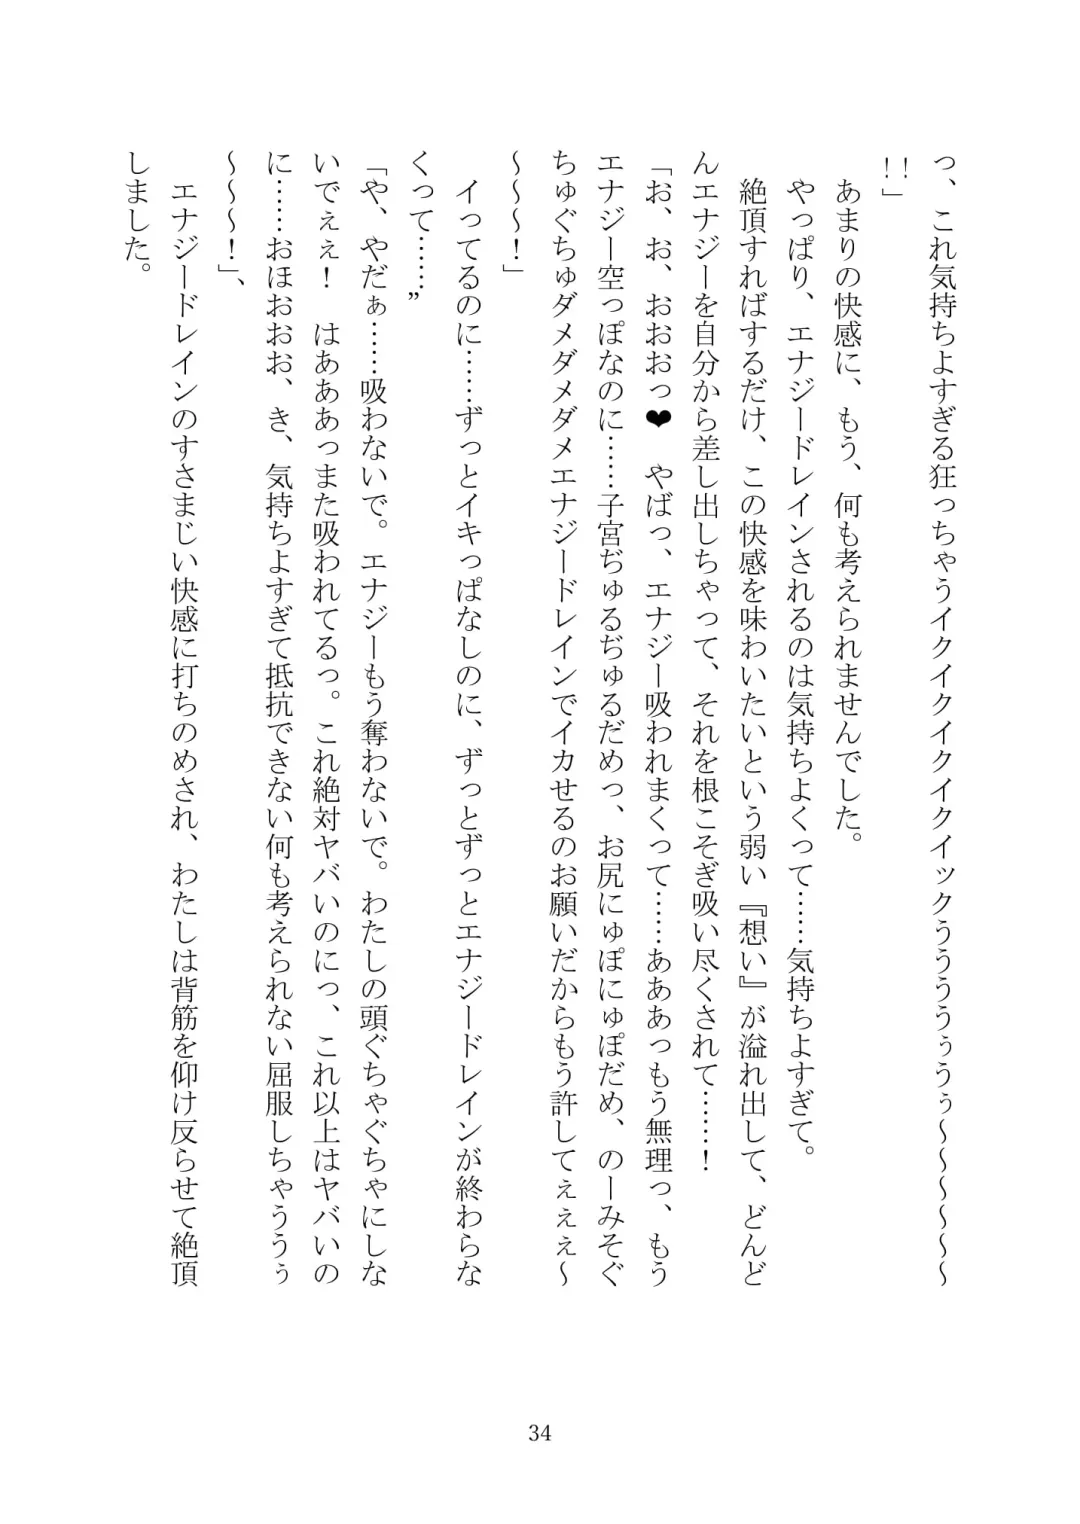 っ、これ気持ちよすぎる狂っちゃうイクイクイクイクイックううううぅうぅ～～～～～～
!!」
あまりの快感に、もう、何も考えられませんでした。
やっぱり、エナジードレインされるのは気持ちよくって……気持ちよすぎて。
絶頂すればするだけ、この快感を味わいたいという弱い『想い』が溢れ出して、どんど
んエナジーを自分から差し出しちゃって、それを根こそぎ吸い尽くされて……！
「お、お、おおおっ❤　やばっ、エナジー吸われまくって……あああっもう無理っ、もう
エナジー空っぽなのに……子宮ぢゅるぢゅるだめっ、お尻にゅぽにゅぽだめ、のーみそぐ
ちゅぐちゅダメダメダメエナジードレインでイカせるのお願いだからもう許してぇぇぇ～
～～～！」
イってるのに……ずっとイキっぱなしのに、ずっとずっとエナジードレインが終わらな
くって……”
「や、やだぁ……吸わないで。エナジーもう奪わないで。わたしの頭ぐちゃぐちゃにしな
いでぇぇ！　はあああっまた吸われてるっ。これ絶対ヤバいのにっ、これ以上はヤバいの
に……おほおおお、き、気持ちよすぎて抵抗できない何も考えられない屈服しちゃううぅ
～～～！」、
エナジードレインのすさまじい快感に打ちのめされ、わたしは背筋を仰け反らせて絶頂
しました。
34